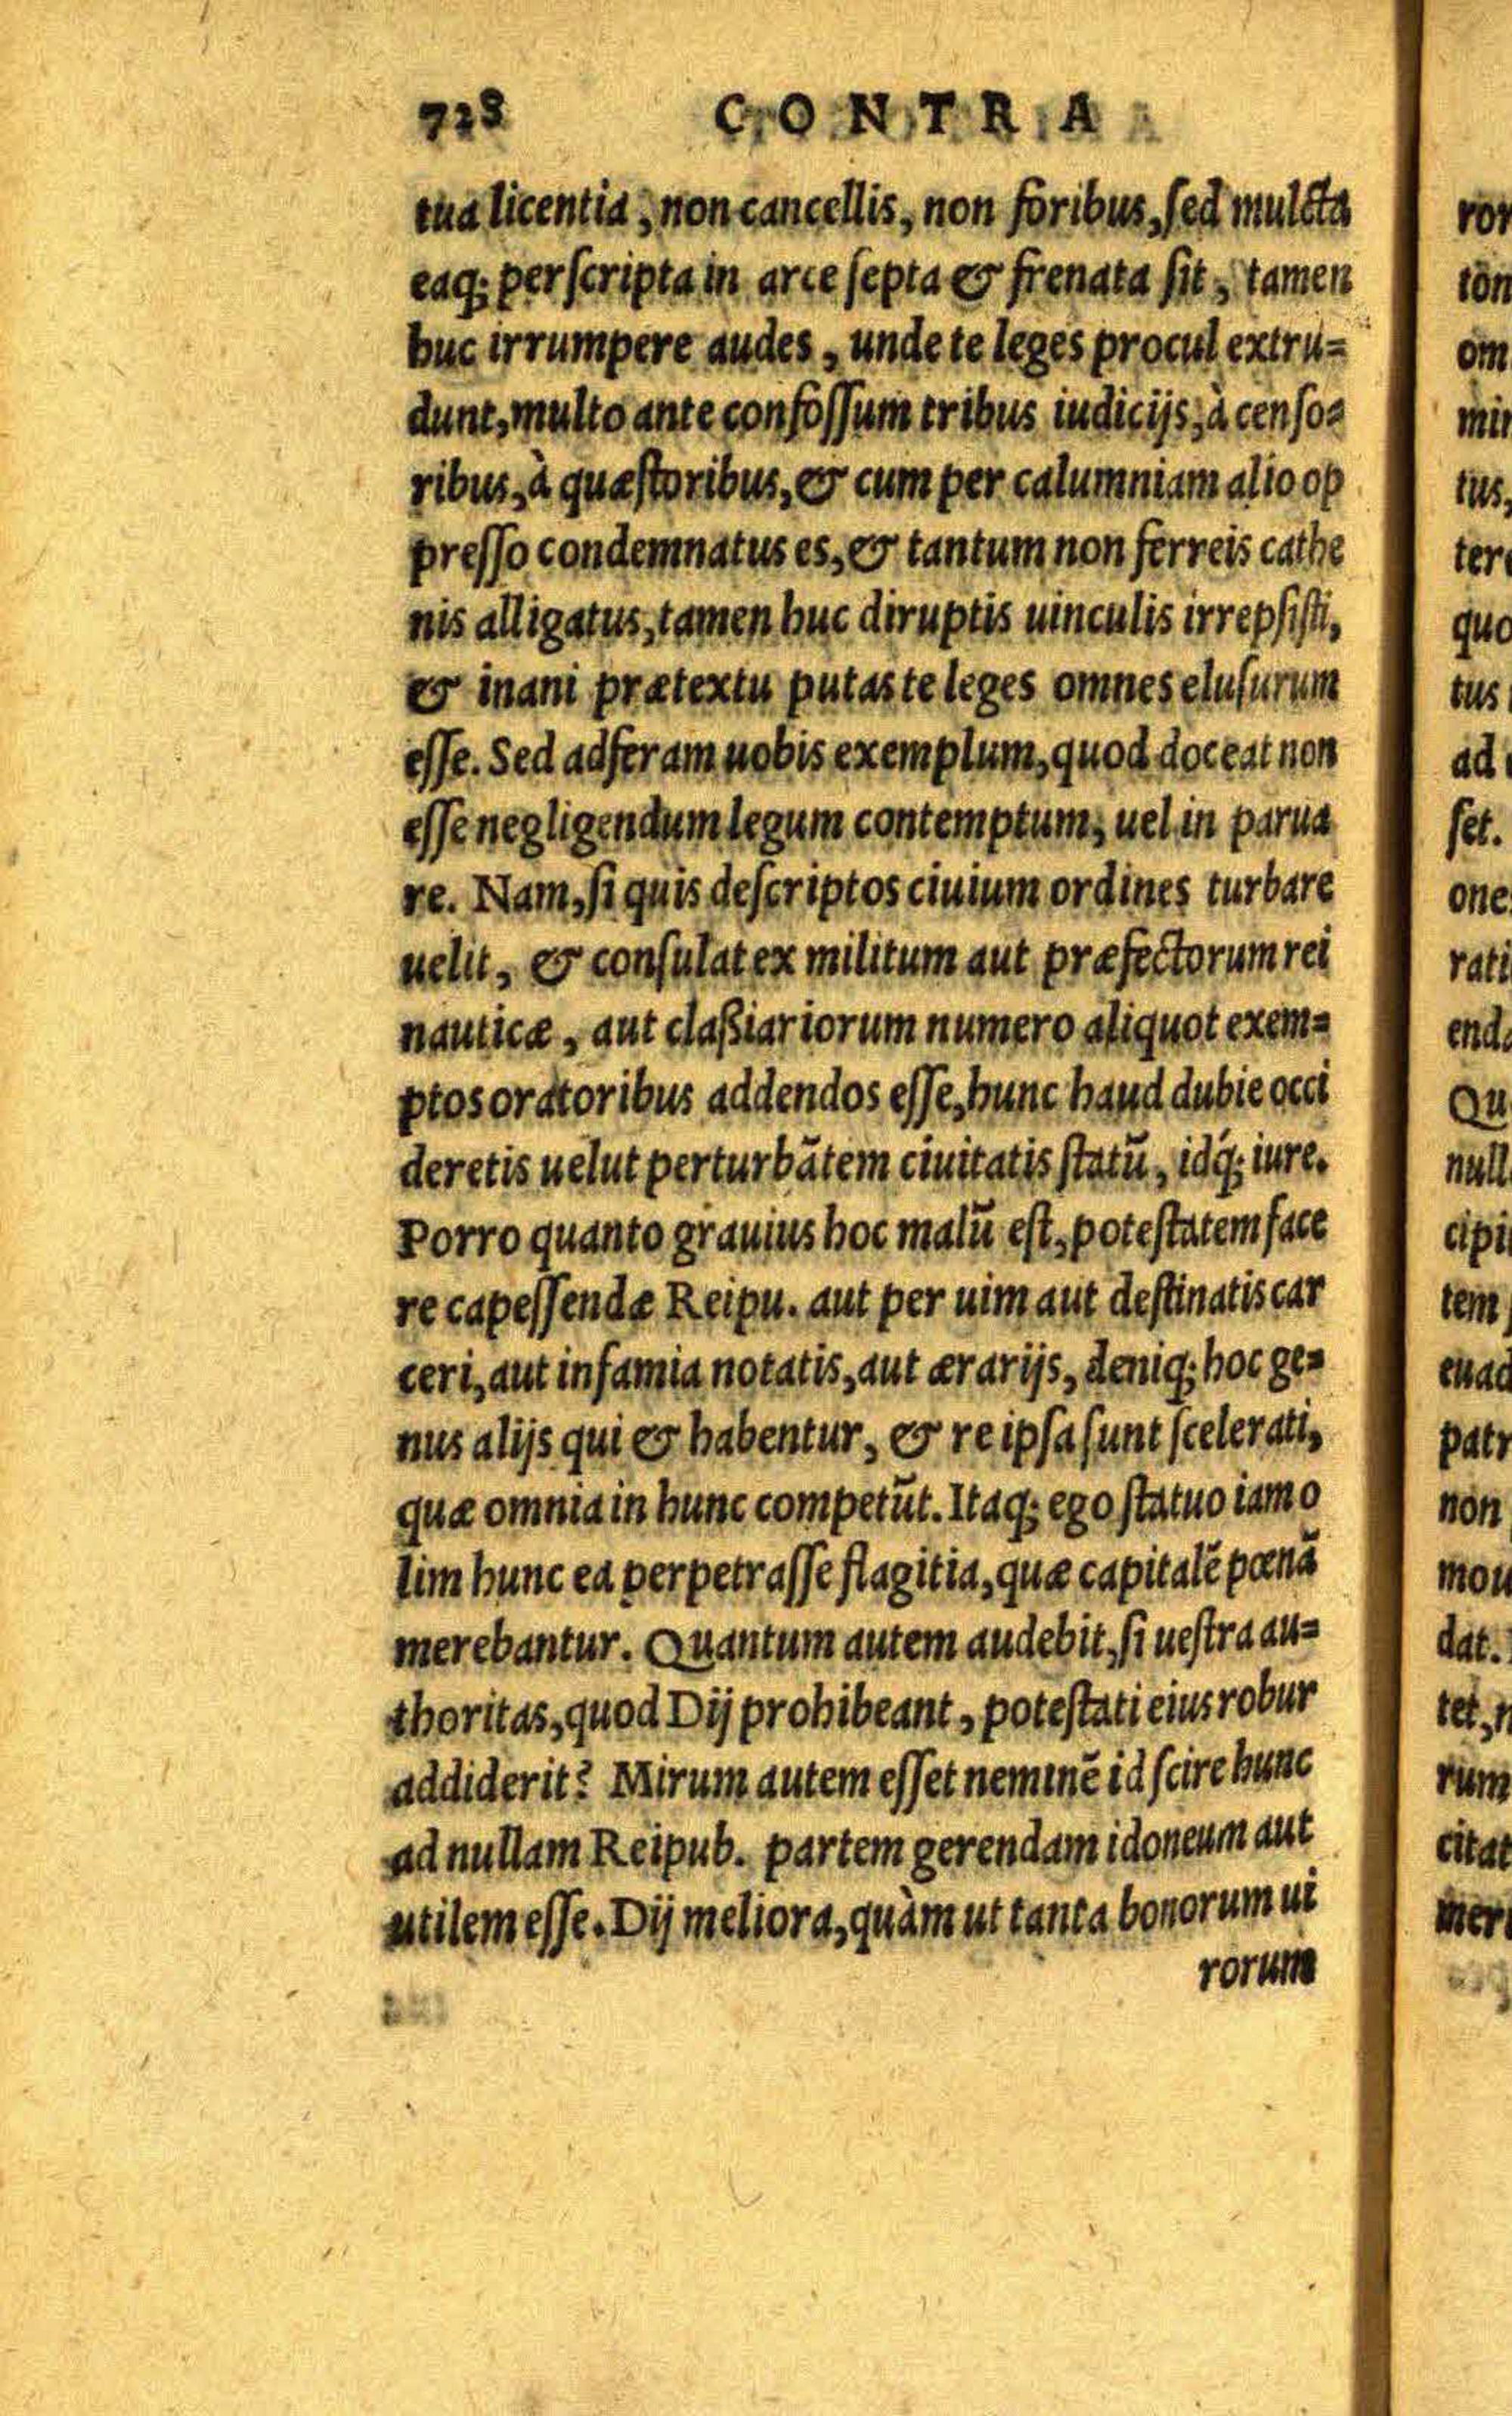 728 CONTRA
tua licentia, non cancellis, non foribus, sed mulcta
eaq; perscripta in arce septa & frenata sit, tamen
huc irrumpere audes, unde te leges procul extru=
dunt, multo ante confossum tribus iudicijs, à censo=
ribus, à quæstoribus, & cum per calumniam alio op
presso condemnatus es, & tantum non ferreis cathe
nis alligatus, tamen huc diruptis uinculis irrepsisti,
& inani prætextu putas te leges omnes elusurum
esse. Sed adferam uobis exemplum, quod doceat non
esse negligendum legum contemptum, uel in parua
re. Nam, si quis descriptos ciuium ordines turbare
uelit, & consulat ex militum aut præfectorum rei
nauticæ, aut claßiariorum numero aliquot exem=
ptos oratoribus addendos esse, hunc haud dubie occi
deretis uelut perturbātem ciuitatis statū, idq́; iure.
Porro quanto grauius hoc malū est, potestatem face
re capessendæ Reipu. aut per uim aut destinatis car
ceri, aut infamia notatis, aut ærarijs, deniq; hoc ge=
nus alijs qui & habentur, & re ipsa sunt scelerati,
quæ omnia in hunc competūt. Itaq; ego statuo iam o
lim hunc ea perpetrasse flagitia, quæ capitalē pœnā
merebantur. Quantum autem audebit, si uestra au=
thoritas, quod Dij prohibeant, potestati eius robur
addiderit? Mirum autem esset neminē id scire hunc
ad nullam Reipub. partem gerendam idoneum aut
utilem esse. Dij meliora, quàm ut tanta bonorum ui
rorum
ror
ton
om
min
tus,
ter
quo
tus
ad
set.
one
rati
end
Qu
null
cipi
tem
euad
patr
non
mou
dat.
tet, n
rum
citat
mer